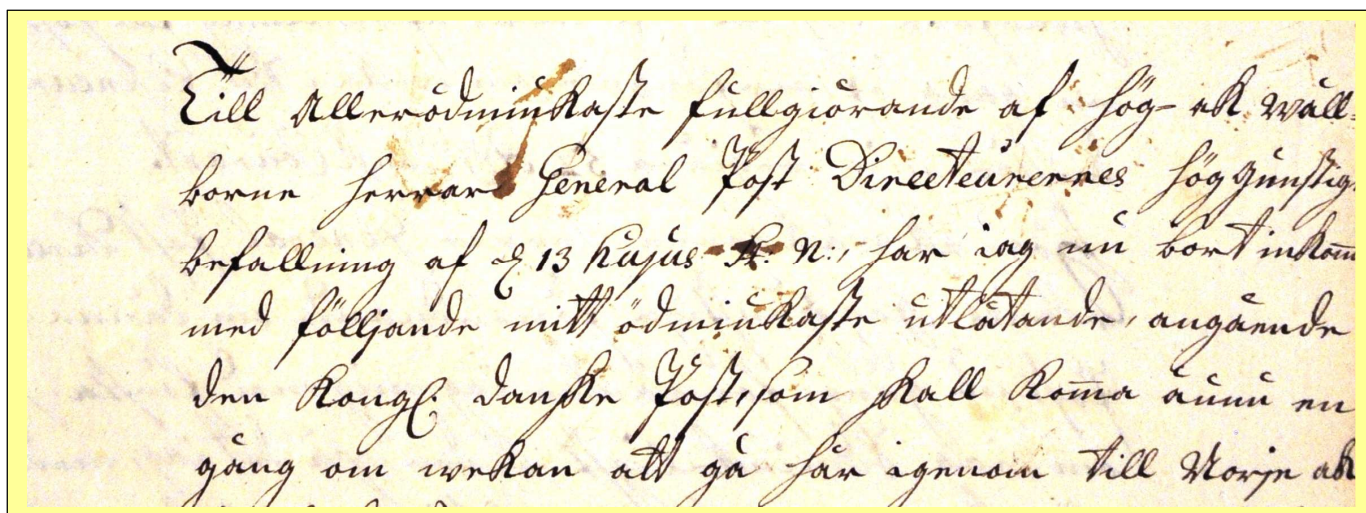 Till Allerödmiukaste fullgiörande af hög- ok wäll-
borne herrar General Post Directeurernes höggunstig.
befallning af d. 13 hujus St: N:, har iag nu bort inkom̅
med fölljande mitt ödmiukaste utlåtande, angående
den Kongl. Danske Post, som skall kom̅a ännu en
gång om wekan att gå här igenom till Norje ok